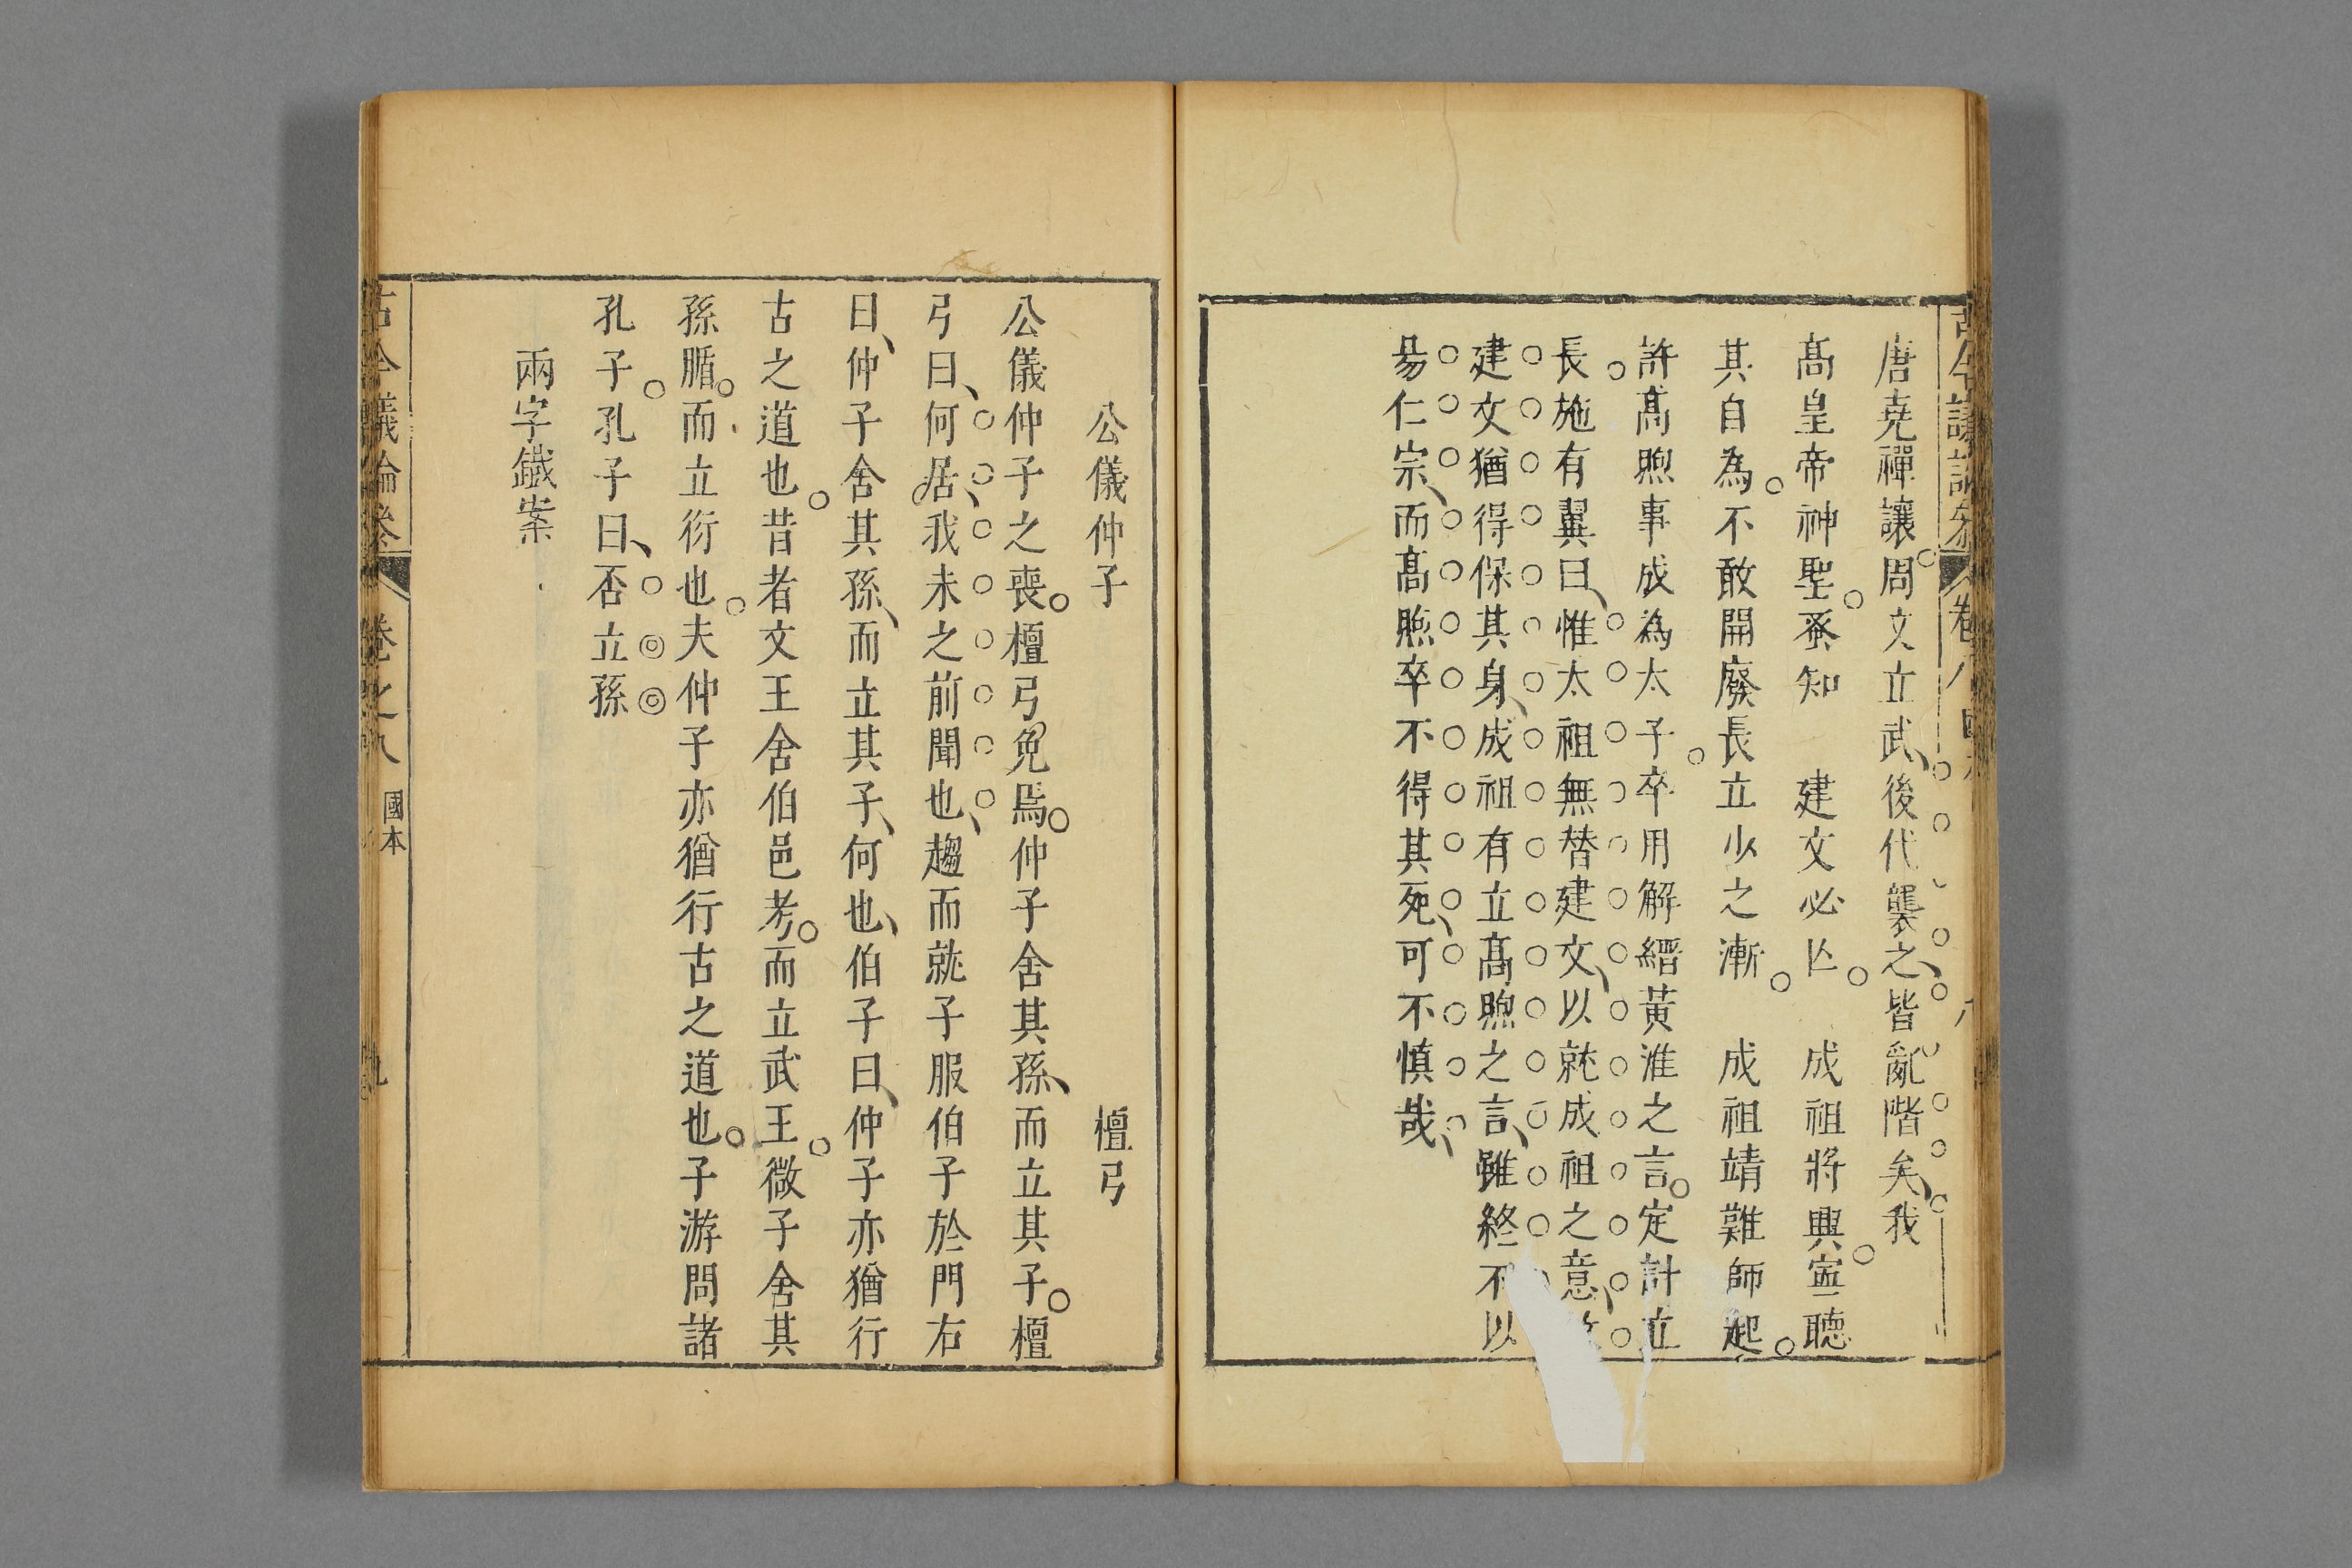 唐堯禪讓周文立武後代襲之皆亂階矣我
髙皇帝神聖蚤知 建文必亾 成祖將興寍聽
其自為不敢開廢長立少之漸 成祖靖難師起
許髙煦事成為太子卒用解縉黃淮之言定計立
長施有翼曰惟太祖無替建文以就成祖之意
建文猶得保其身成祖有立髙煦之言雖終不以
易仁宗而髙煦卒不得其死可不慎哉
公儀仲子 檀弓
公儀仲子之喪檀弓免焉仲子舍其孫而立其子檀
弓曰何居我未之前聞也趨而就子服伯子於門右
曰仲子舍其孫而立其子何也伯子曰仲子亦猶行
古之道也昔者文王舍伯邑考而立武王微子舍其
孫腯而立衍也夫仲子亦猶行古之道也子游問諸
孔子孔子曰否立孫
兩字鐵案
古今議論參 卷之八 國本 九